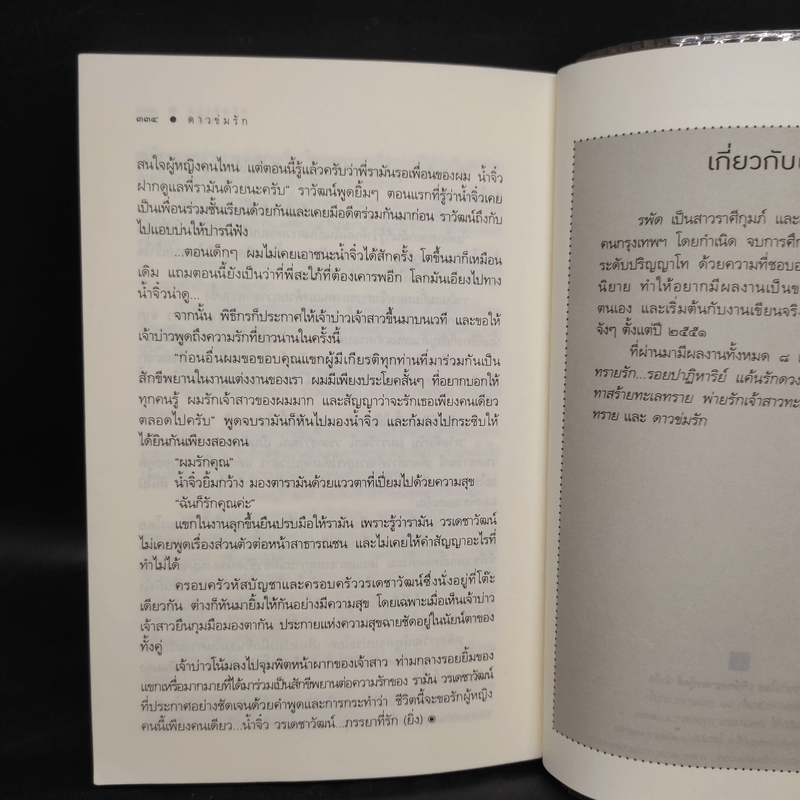 ๓๓๔ ● ดาวข่มรัก
สนใจผู้หญิงคนไหน แต่ตอนนี้รู้แล้วครับว่าพี่รามันรอเพื่อนของผม น้ำจิ๋ว
ฝากดูแลพี่รามันด้วยนะครับ” ราวัฒน์พูดยิ้มๆ ตอนแรกที่รู้ว่าน้ำจิ๋วเคย
เป็นเพื่อนร่วมชั้นเรียนด้วยกันและเคยมีอดีตร่วมกันมาก่อน ราวัฒน์ถึงกับ
ไปแอบบ่นให้ปารนีฟัง
...ตอนเด็กๆ ผมไม่เคยเอาชนะน้ำจิ๋วได้สักครั้ง โตขึ้นมาก็เหมือน
เดิม แถมตอนนี้ยังเป็นว่าที่พี่สะใภ้ที่ต้องเคารพอีก โลกมันเอียงไปทาง
น้ำจิ๋วน่าดู...
จากนั้น พิธีกรก็ประกาศให้เจ้าบ่าวเจ้าสาวขึ้นมาบนเวที และขอให้
เจ้าบ่าวพูดถึงความรักที่ยาวนานในครั้งนี้
“ก่อนอื่นผมขอขอบคุณแขกผู้มีเกียรติทุกท่านที่มาร่วมกันเป็น
สักขีพยานในงานแต่งงานของเรา ผมมีเพียงประโยคสั้นๆ ที่อยากบอกให้
ทุกคนรู้ ผมรักเจ้าสาวของผมมาก และสัญญาว่าจะรักเธอเพียงคนเดียว
ตลอดไปครับ” พูดจบรามันก็หันไปมองน้ำจิ๋ว และก้มลงไปกระซิบให้
ได้ยินกันเพียงสองคน
“ผมรักคุณ”
น้ำจิ๋วยิ้มกว้าง มองตารามันด้วยแววตาที่เปี่ยมไปด้วยความสุข
“ฉันก็รักคุณค่ะ”
แขกในงานลุกขึ้นยืนปรบมือให้รามัน เพราะรู้ว่ารามัน วรเดชาวัฒน์
ไม่เคยพูดเรื่องส่วนตัวต่อหน้าสาธารณชน และไม่เคยให้คำสัญญาอะไรที่
ทำไม่ได้
ครอบครัวหัสบัญชาและครอบครัววรเดชาวัฒน์ซึ่งนั่งอยู่ที่โต๊ะ
เดียวกัน ต่างก็หันมายิ้มให้กันอย่างมีความสุข โดยเฉพาะเมื่อเห็นเจ้าบ่าว
เจ้าสาวยืนกุมมือมองตากัน ประกายแห่งความสุขฉายชัดอยู่ในนัยน์ตาของ
ทั้งคู่
เจ้าบ่าวโน้มลงไปจุมพิตหน้าผากของเจ้าสาว ท่ามกลางรอยยิ้มของ
แขกเหรื่อมากมายที่ได้มาร่วมเป็นสักขีพยานต่อความรักของ รามัน วรเดชาวัฒน์
ที่ประกาศอย่างชัดเจนด้วยคำพูดและการกระทำว่า ชีวิตนี้จะขอรักผู้หญิง
คนนี้เพียงคนเดียว...น้ำจิ๋ว วรเดชาวัฒน์...ภรรยาที่รัก (ยิ่ง)
เกี่ยวกับ
รพัด เป็นสาวราศีกุมภ์ และ
คนกรุงเทพฯ โดยกำเนิด จบการศึ
ระดับปริญญาโท ด้วยความที่ชอบอ
นิยาย ทำให้อยากมีผลงานเป็นข
ตนเอง และเริ่มต้นกับงานเขียนจริง
จังๆ ตั้งแต่ปี ๒๕๕๑
ที่ผ่านมามีผลงานทั้งหมด ๘
ทรายรัก...รอยปาฏิหาริย์ แค้นรักดวง
ทาสร้ายทะเลทราย พ่ายรักเจ้าสาวทะ
ทราย และ ดาวข่มรัก